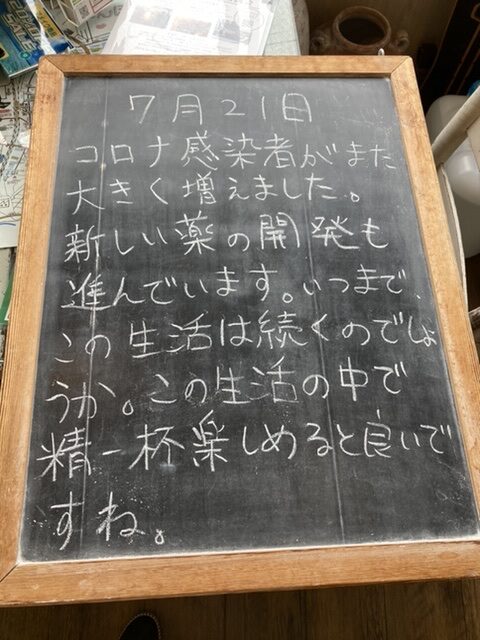 7月21日
コロナ感染者がまた
大きく増えました。
新しい薬の開発も
進んでいます。いつまで、
この生活は続くのでしょ
うか。この生活の中で
精一杯楽しめると良いで
すね。